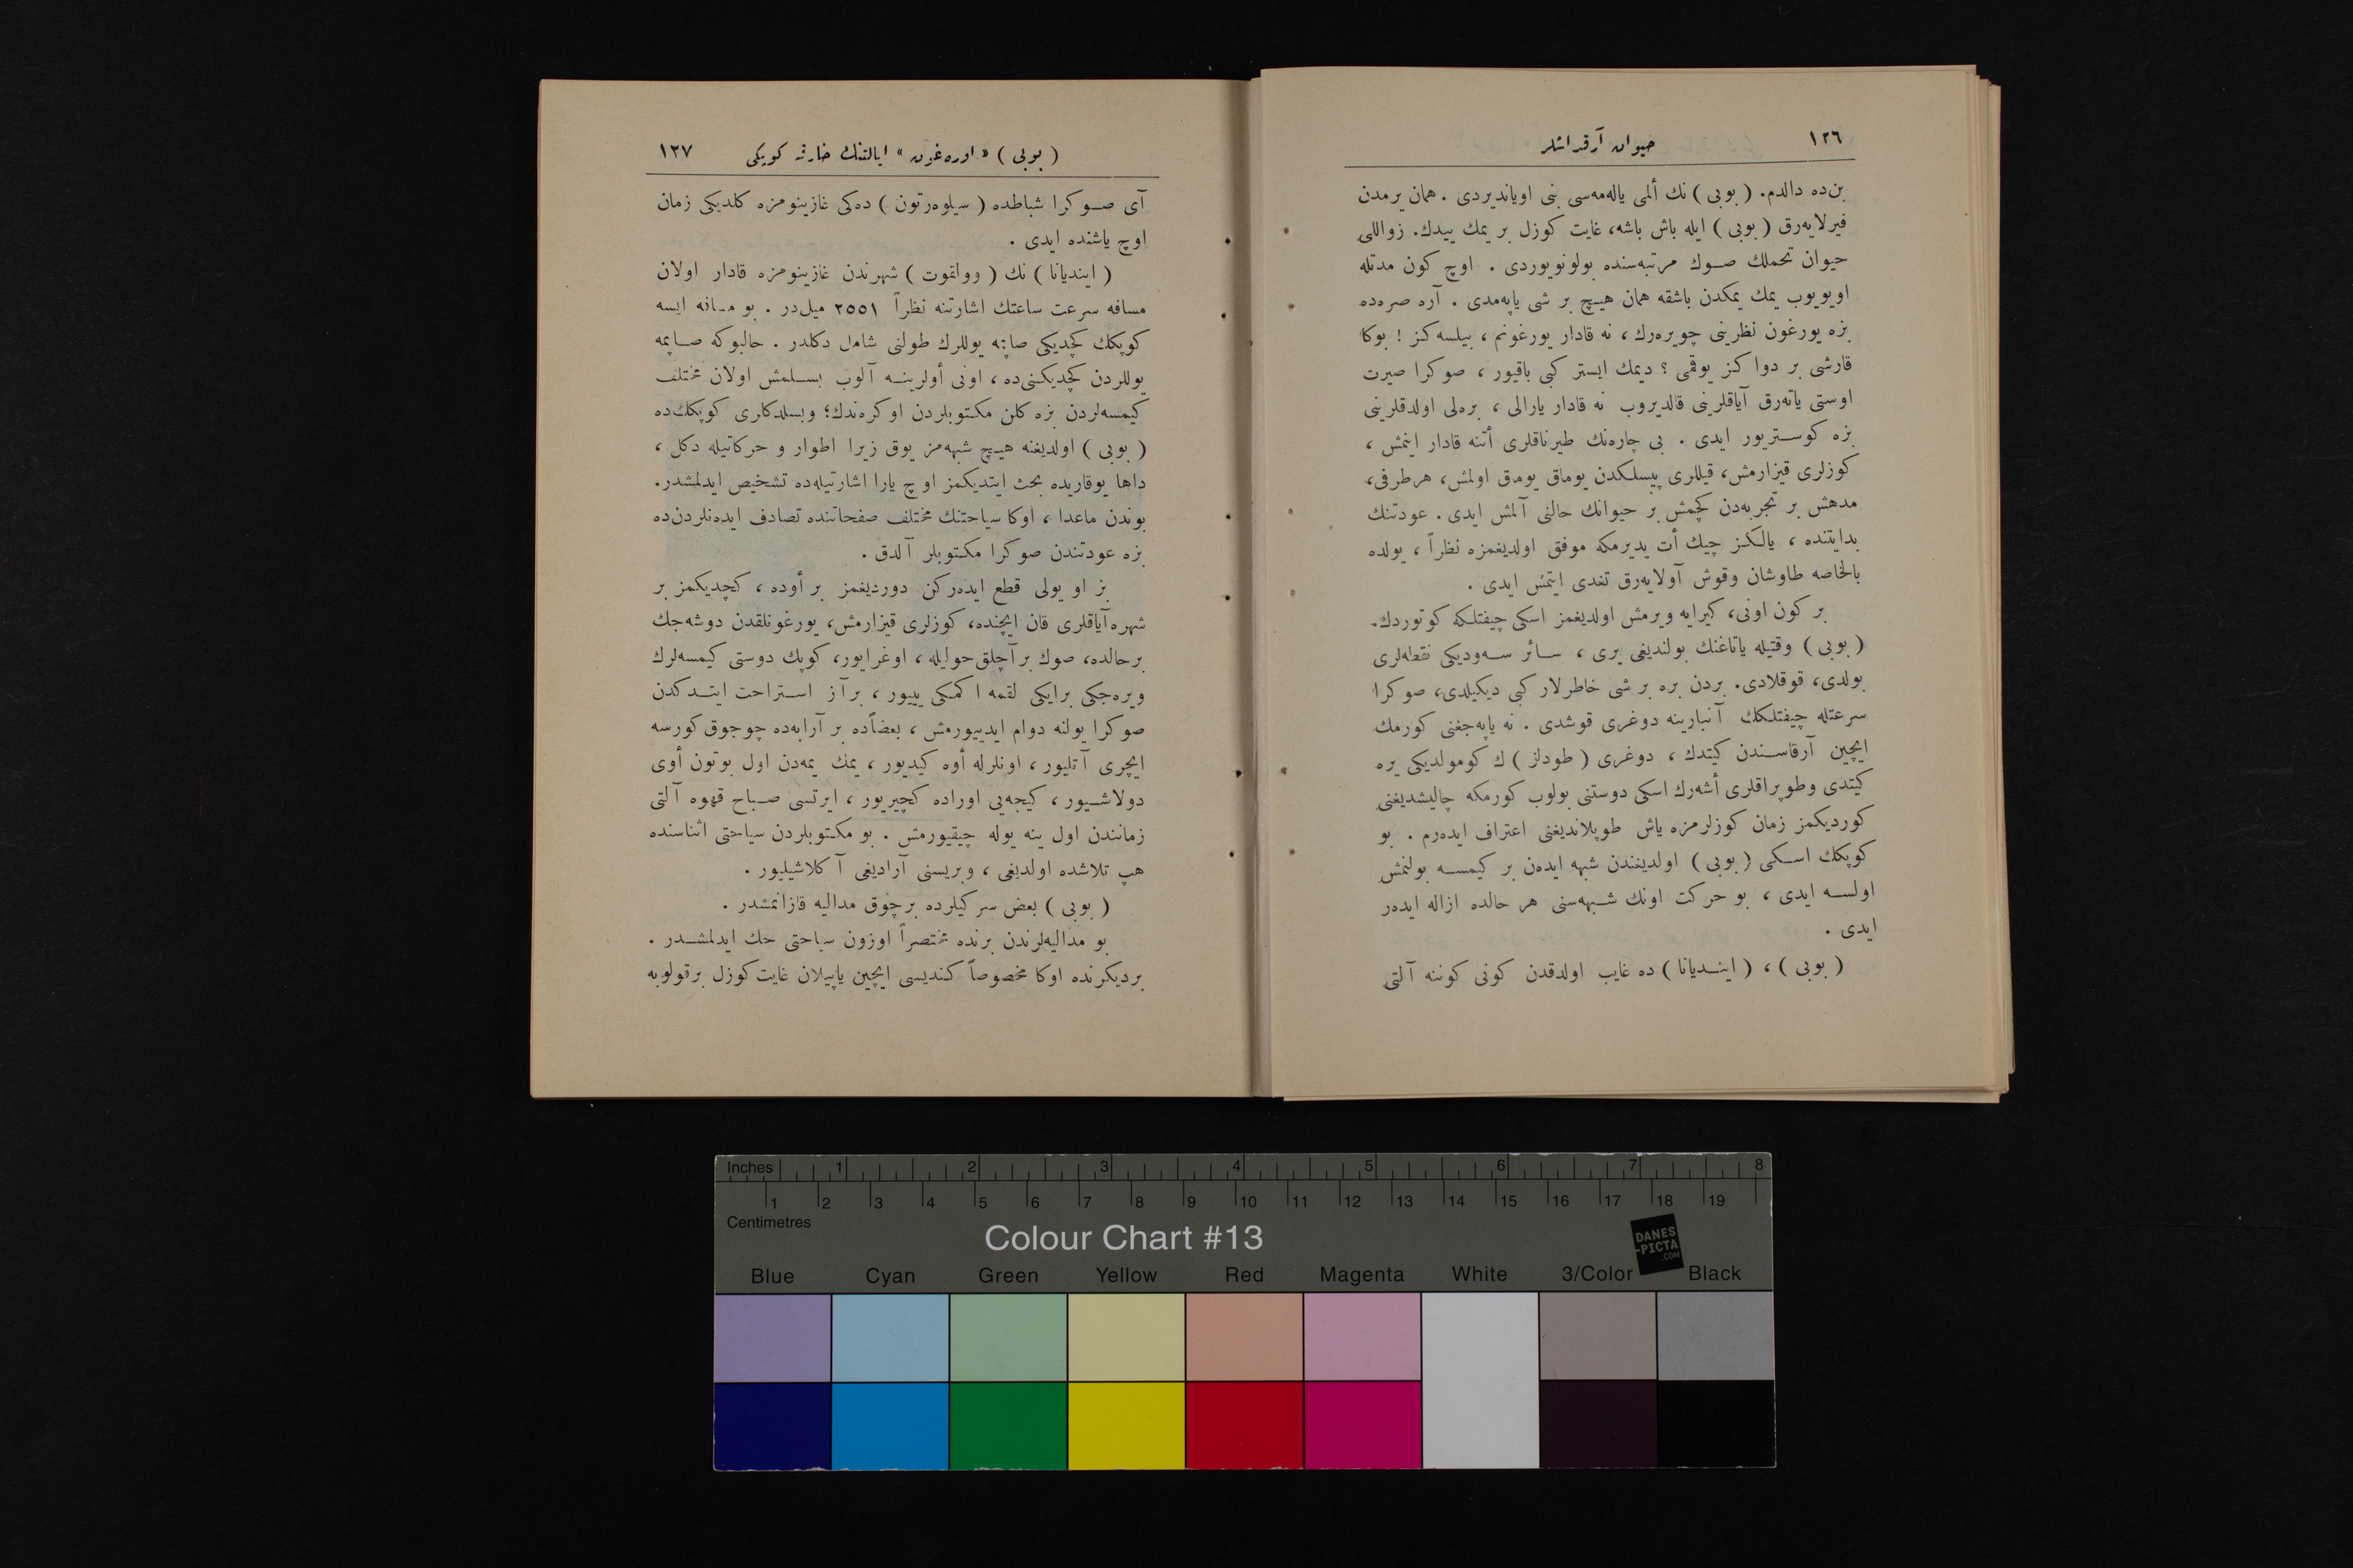 ١٢٦
حیوان آرقداشلر
بن‌ده دالدم. ( بوبی ) نك ألمی یاله‌مه‌سی بنی اویاندیردی . همان یرمدن
فیرلایه‌رق ( بوبی ) ایله باش باشه، غایت كوزل بر یمك ییدك. زواللی
حیوان تحملك صوك مرتبه‌سنده بولونویوردی . اوچ كون مدتله
اویویوب یمك یمكدن باشقه همان هیچ بر شی یاپه‌مدی . آره صره‌ده
بزه یورغون نظرینی چویره‌رك ، نه قادار یورغونم ، بیلسه‌كز ! بوكا
قارشی بر دوا كز یوقمی ؟ دیمك ایستر كبی باقیور ، صوكرا صیرت
اوستی یاته‌رق آیاقلرینی قالدیروب نه قادار یارالی ، بره‌لی اولدقلرینی
بزه كوستریور ایدی . بی چاره‌نك طیرناقلری أتنه قادار اینمش ،
كوزلری قیزارمش، قیللری پیسلكدن یوماق یومق اولمش، هرطرفی،
مدهش بر تجربه‌دن كچمش بر حیوانك حالنی آلمش ایدی . عودتنك
بدایتنده ، یالكز چیك أت یدیرمكه موفق اولدیغمزه نظراً ، یولده
بالخاصه طاوشان وقوش آولایه‌رق تغدی ایتمش ایدی .
بر كون اونی، كیرایه ویرمش اولدیغمز اسكی چیفتلكه كوتوردك.
( بوبی ) وقتیله یاتاغنك بولندیغی یری ، سائر سه‌ودیكی نقطه‌لری
بولدی، قوقلادی. بردن بره بر شی خاطرلار كبی دیكیلدی، صوكرا
سرعتله چیفتلكك آنبارینه دوغری قوشدی . نه یاپه‌جغنی كورمك
ایچین آرقاسندن كیتدك ، دوغری ( طودلز ) ك كومولدیكی یره
كیتدی وطوپراقلری أشه‌رك اسكی دوستنی بولوب كورمكه چالیشدیغنی
كوردیكمز زمان كوزلرمزه یاش طوپلاندیغنی اعتراف ایده‌رم . بو
كوپكك اسكی ( بوبی ) اولدیغندن شبهه ایده‌ن بر كیمسه بولنمش
اولسه ایدی ، بو حركت اونك شبهه‌سنی هر حالده ازاله ایده‌ر
ایدی .
( بوبی ) ، ( ایندیانا ) ده غایب اولدقدن كونی كوننه آلتی
( بوبی ) « اوره‌غون » ایالتنك خارقه كوپكی
١٢٧
آی صوكرا شباطده ( سیلوه‌رتون ) ده‌كی غازینومزه كلدیكی زمان
اوچ یاشنده ایدی .
( ایندیانا ) نك ( وولقوت ) شهرندن غازینومزه قادار اولان
مسافه سرعت ساعتك اشارتنه نظراً ٢٥٥١ میل‌در . بو مسافه ایسه
كوپكك كچدیكی صاپه یوللرك طولنی شامل دكلدر . حالبوكه صاپمه
یوللردن كچدیكنی‌ده ، اونی أولرینه آلوب بسلمش اولان مختلف
كیمسه‌لردن بزه كلن مكتوبلردن اوكره‌ندك؛ وبسلدكلری كوپكك‌ده
( بوبی ) اولدیغنه هیچ شبهه‌مز یوق زیرا اطوار و حركاتیله دكل ،
داها یوقاریده بحث ایتدیكمز اوچ یارا اشارتیله‌ده تشخیص ایدلمشدر.
بوندن ماعدا ، اوكا سیاحتنك مختلف صفحاتنده تصادف ایده‌نلردن‌ده
بزه عودتندن صوكرا مكتوبلر آلدق .
بز او یولی قطع ایده‌ركن دوردیغمز بر أوده ، كچدیكمز بر
شهره آیاقلری قان ایچنده، كوزلری قیزارمش، یورغونلقدن دوشه‌جك
برحالده، صوك برآچلق‌حولیله ، اوغرایور، كوپك دوستی كیمسه‌لرك
ویره‌جكی برایكی لقمه اكمكی ییور ، برآز استراحت ایتدكدن
صوكرا یولنه دوام ایدییورمش ، بعضاًده بر آرابه‌ده چوجوق كورسه
ایچری آتلیور ، اونلرله أوه كیدیور ، یمك یمه‌دن اول بوتون أوی
دولاشیور ، كیجه‌یی اوراده كچیریور ، ایرتسی صباح قهوه آلتی
زمانندن اول ینه یوله چیقیورمش . بو مكتوبلردن سیاحتی اثناسنده
هپ تلاشده اولدیغی ، وبریسنی آرادیغی آكلاشیلیور .
( بوبی ) بعض سركیلرده برچوق مدالیه قازانمشدر .
بو مدالیه‌لرندن برنده مختصراً اوزون سیاحتی حك ایدلمشدر .
بردیكرنده اوكا مخصوصاً كندیسی ایچین یاپیلان غایت كوزل برقولوبه
Inches 1 2 3 4 5 6 7 8
1 2 3 4 5 6 7 8 9 10 11 12 13 14 15 16 17 18 19
Centimetres
Colour Chart #13
DANES
-PICTA
.COM
Blue Cyan Green Yellow Red Magenta White 3/Color Black